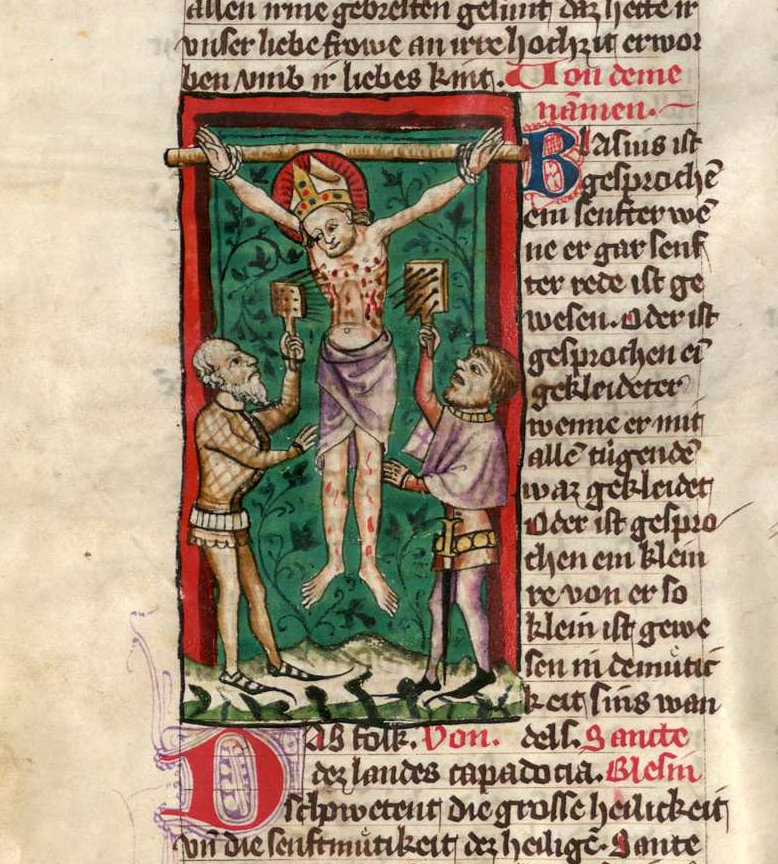 allen irme gebresten gesunt daz hette ir
vnser liebe frowe an irre hochzit erwor
ben vmb ir liebes kint. Von deme
namen.
Blasius ist
gesprochē
ein senfter we
ne er gar senf
ter rede ist ge
wesen. Oder ist
gesprochen ei
gekleideter
wenne er mit
allē tugendē
waz gekleidet
Oder ist gespro
chen ein klein
re von er so
klein ist gewe
sen in demuͤtic
keit sins wan
dels. Sancte
Blesin
Das folk. Von.
dez landes capadocia.
schpwetent die grosse heilickeit
vn̄ die senftmuͤtikeit dez heiligē. Sante